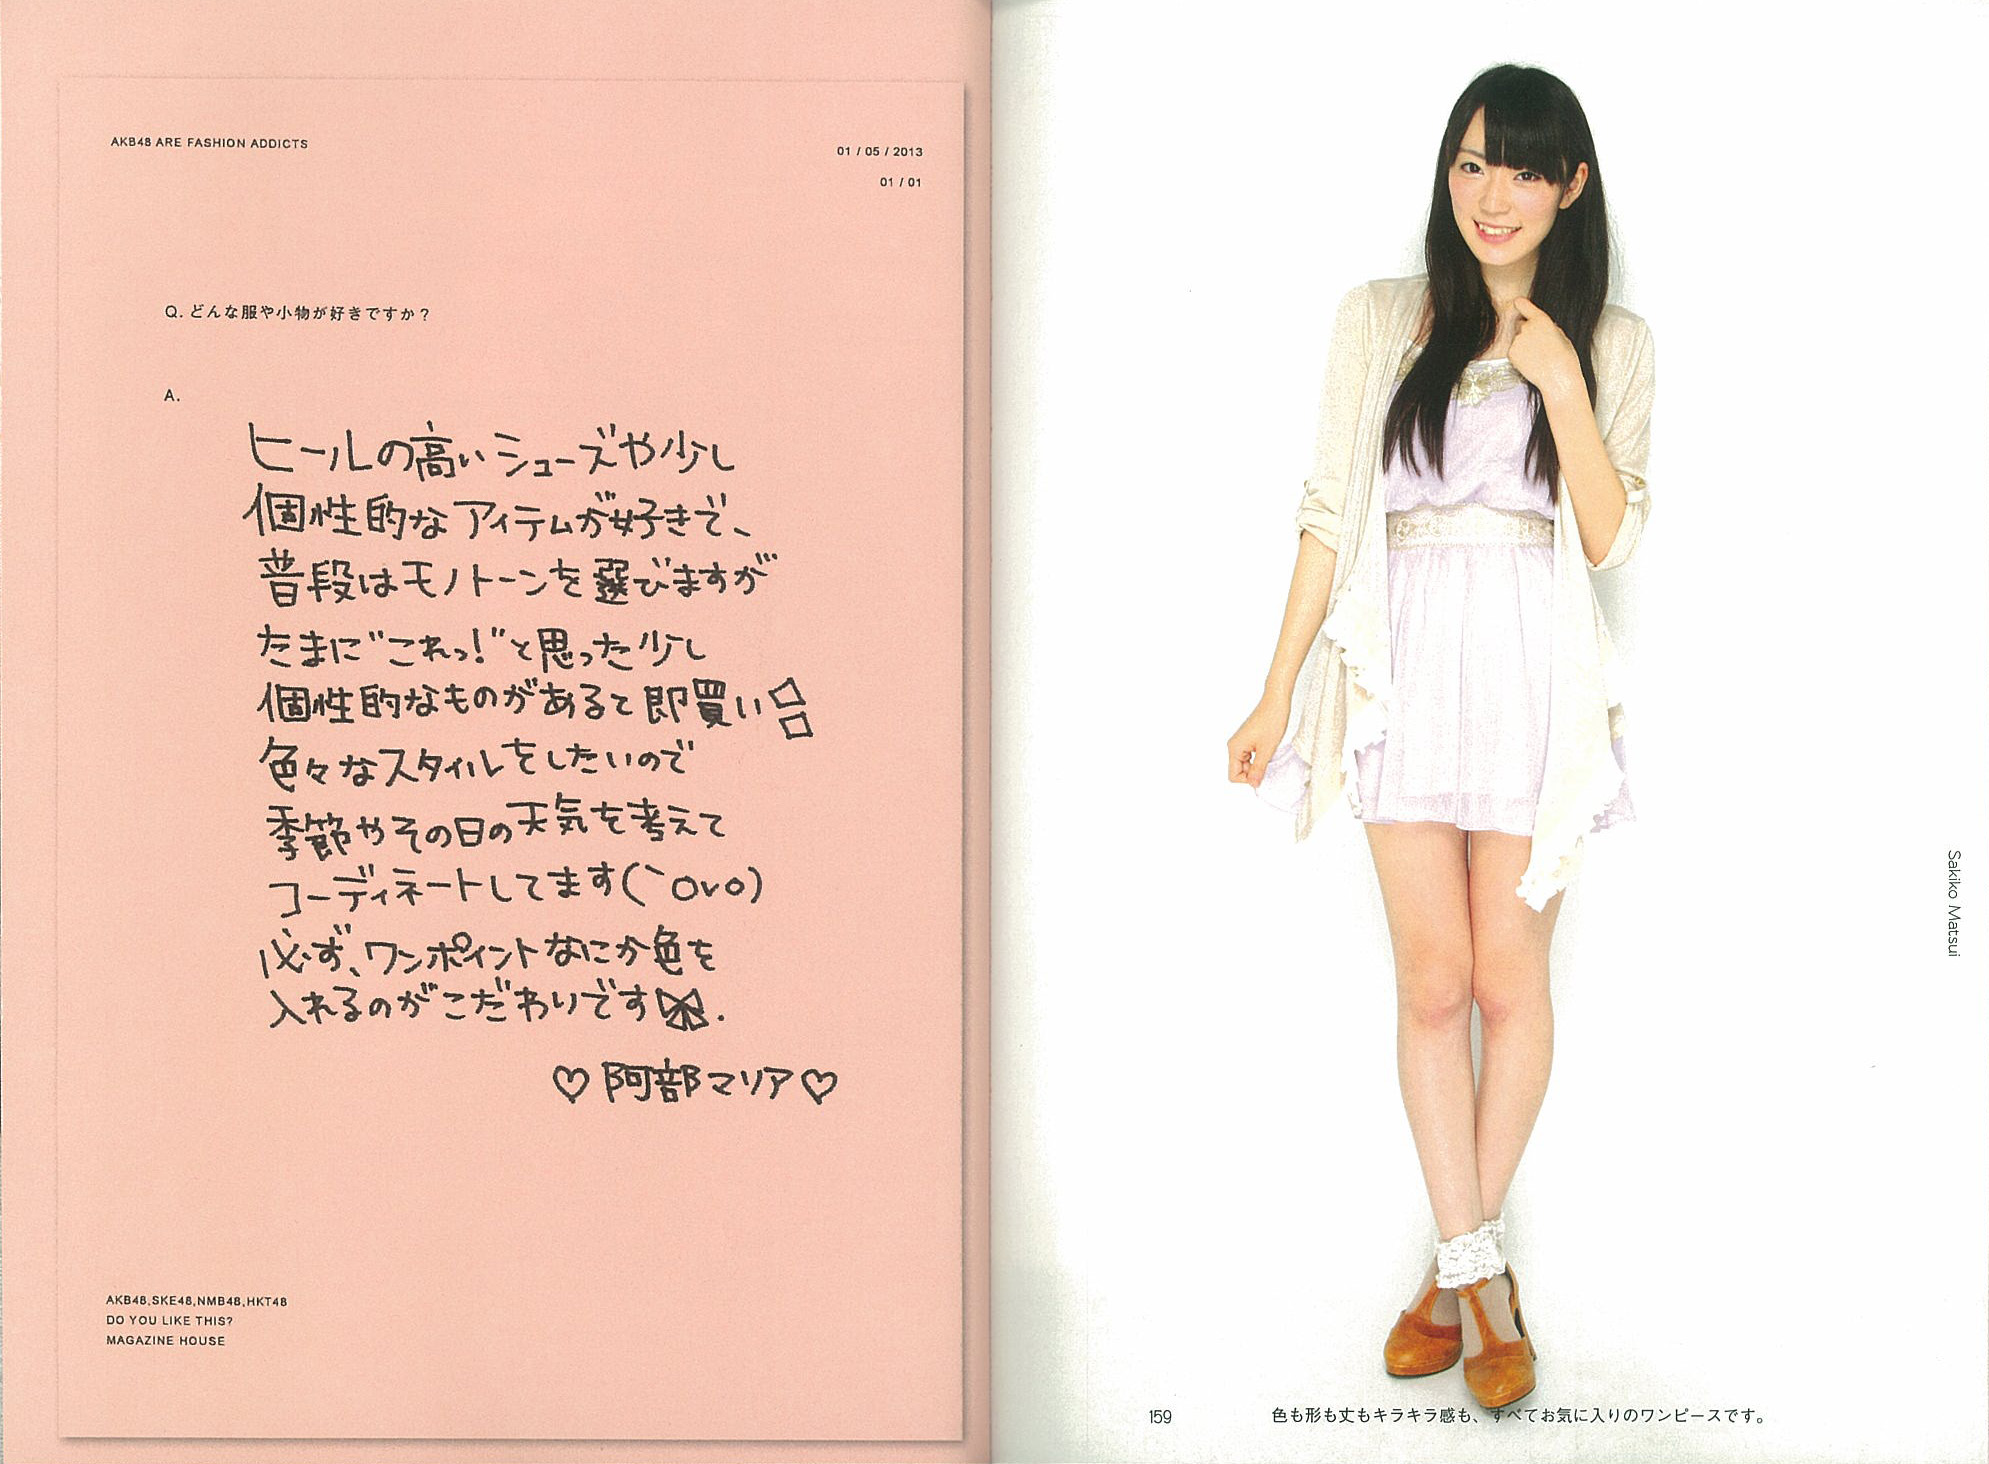 AKB48 ARE FASHION ADDICTS
01 / 05 / 2013
01 / 01
Q. どんな服や小物が好きですか？
A.
ヒールの高いシューズや少し
個性的なアイテムが好きで、
普段はモノトーンを選びますが
たまに"これっ!"と思った少し
個性的なものがあると即買い
色々なスタイルをしたいので
季節やその日の天気を考えて
コーディネートしてます(`ovo)
必ず、ワンポイントなにか色を
入れるのがこだわりです.
♡阿部マリア♡
AKB48,SKE48,NMB48,HKT48
DO YOU LIKE THIS?
MAGAZINE HOUSE
Sakiko Matsui
159
色も形も丈もキラキラ感も、すべてお気に入りのワンピースです。